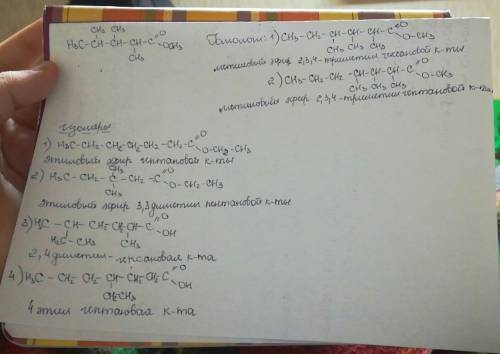 CH₃ CH₃
H₃C-CH-CH-CH-C=O OCH₃
CH₃
Гомологи: 1) CH₃-CH₂-CH-CH-CH-C=O O-CH₃
CH₃ CH₃ CH₃
метиловый эфир 2,3,4-триметил гексановой к-ты
2) CH₃-CH₂-CH₂-CH-CH-CH-C=O O-CH₃
CH₃ CH₃ CH₃
метиловый эфир 2,3,4-триметил гептановой к-ты
изомеры
1) H₃C-CH₂-CH₂-CH₂-CH₂-CH₂-C=O O-CH₂-CH₃
этиловый эфир гептановой к-ты
CH₃
2) H₃C-CH₂-C-CH₂-C=O O-CH₂-CH₃
CH₃
этиловый эфир 3,3диметил пентановой к-ты
3) H₃C-CH-CH₂-CH-C=O OH
H₃C-CH₃ CH₃
2,4диметил-гексановая к-та
4) H₃C-CH₂-CH₂-CH-CH₂-CH₂-C=O OH
CH₂CH₃
4 этил гептановая к-та